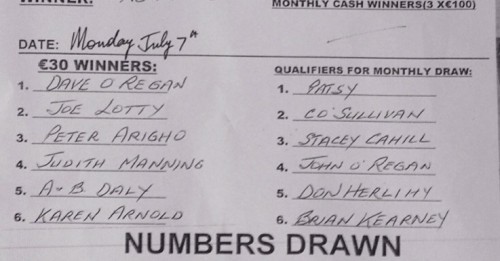 WINNER:
MONTHLY CASH WINNERS(3 X€100)
DATE: Monday July 7th
€30 WINNERS:
1. DAVE O REGAN
2. JOE LOTTY
3. PETER ARIGHO
4. JUDITH MANNING
5. A+B DALY
6. KAREN ARNOLD
QUALIFIERS FOR MONTHLY DRAW:
1. PATSY
2. CO'SULLIVAN
3. STACEY CAHILL
4. JOHN O'REGAN
5. DON HERLIHY
6. BRIAN KEARNEY
NUMBERS DRAWN